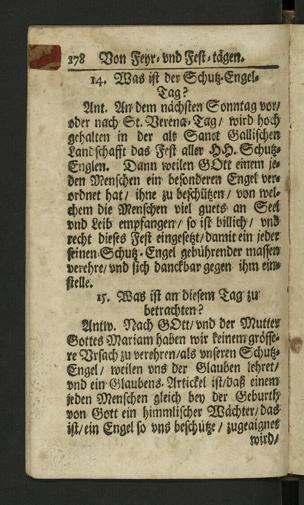 178 Von Feyr- vnd Fest-tägen.
14. Was ist der Schutz-Engel-
Tag?
Ant. An dem nächsten Sonntag vor/
oder nach St. Verena-Tag/ wird hoch
gehalten in der alt Sanct Gallischen
Landschafft das Fest aller HH. Schutz-
Englen. Dann weilen GOtt einem je-
den Menschen ein besonderen Engel ver-
ordnet hat/ ihne zu beschützen/ von wel-
chem die Menschen viel guets an Seel
vnd Leib empfangen/ so ist billich/ vnd
recht dieses Fest eingesetzt/ damit ein jeder
seinen Schutz-Engel gebührender massen
verehre/ vnd sich danckbar gegen ihm ein-
stelle.
15. Was ist an diesem Tag zu
betrachten?
Antw. Nach GOtt/ vnd der Mutter
Gottes Mariam haben wir keinem grösse-
re Vrsach zu verehren/ als vnseren Schutz-
Engel/ weilen vns der Glauben lehret/
vnd ein Glaubens-Artickel ist/ daß einem
jeden Menschen gleich bey der Geburth
von Gott ein himmlischer Wächter/ das
ist/ ein Engel so vns beschütze/ zugeaignet
wird/